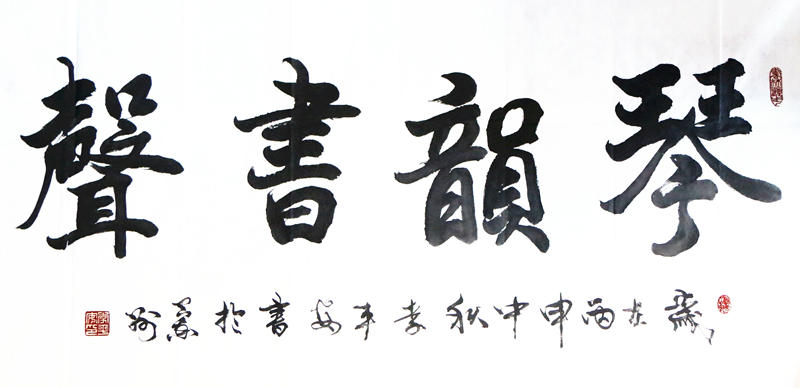 琴韻書聲
歲在丙申中秋李平安書於蒙